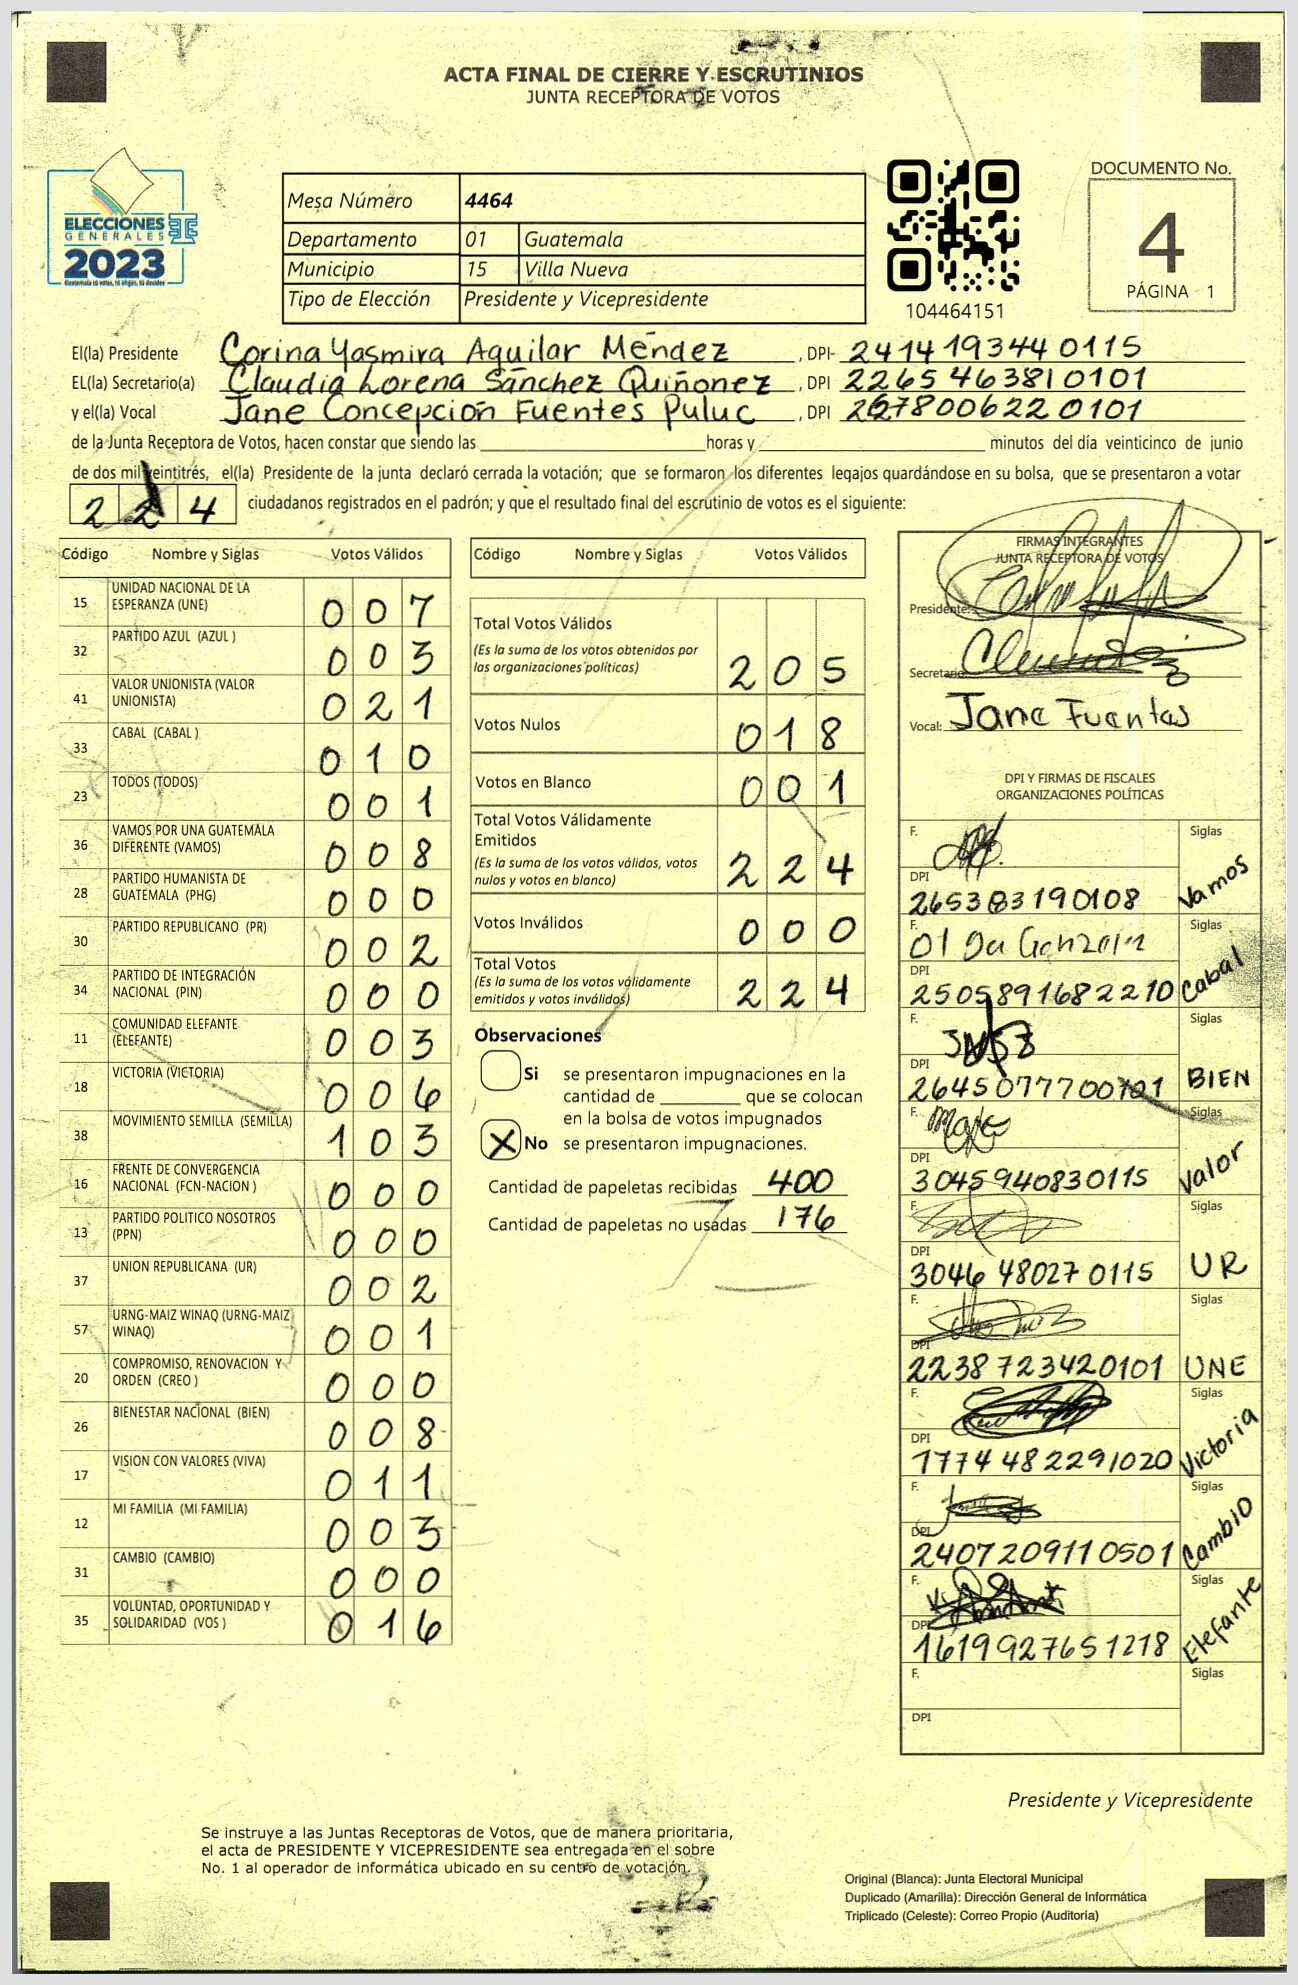 ACTA FINAL DE CIERRE Y ESCRUTINIOS
JUNTA RECEPTORA DE VOTOS
ELECCIONES
GENERALES
2023
Mesa Número 4464
Departamento 01 Guatemala
Municipio 15 Villa Nueva
Tipo de Elección Presidente y Vicepresidente
104464151
DOCUMENTO No.
4
PÁGINA 1
El(la) Presidente Corina Yasmira Aguilar Méndez , DPI 2414193440115
EL(la) Secretario(a) Claudia Lorena Sánchez Quiñonez , DPI 2265463810101
y el(la) Vocal Jane Concepción Fuentes Puluc , DPI 2678006220101
de la Junta Receptora de Votos, hacen constar que siendo las horas y minutos del día veinticinco de junio
de dos mil veintitrés, el(la) Presidente de la junta declaró cerrada la votación; que se formaron los diferentes legajos quardándose en su bolsa, que se presentaron a votar
2 2 4 ciudadanos registrados en el padrón; y que el resultado final del escrutinio de votos es el siguiente:
Código Nombre y Siglas Votos Válidos
15 UNIDAD NACIONAL DE LA ESPERANZA (UNE) 0 0 7
32 PARTIDO AZUL (AZUL ) 0 0 3
41 VALOR UNIONISTA (VALOR UNIONISTA) 0 2 1
33 CABAL (CABAL ) 0 1 0
23 TODOS (TODOS) 0 0 1
36 VAMOS POR UNA GUATEMALA DIFERENTE (VAMOS) 0 0 8
28 PARTIDO HUMANISTA DE GUATEMALA (PHG) 0 0 0
30 PARTIDO REPUBLICANO (PR) 0 0 2
34 PARTIDO DE INTEGRACIÓN NACIONAL (PIN) 0 0 0
11 COMUNIDAD ELEFANTE (ELEFANTE) 0 0 3
18 VICTORIA (VICTORIA) 0 0 6
38 MOVIMIENTO SEMILLA (SEMILLA) 1 0 3
16 FRENTE DE CONVERGENCIA NACIONAL (FCN-NACION ) 0 0 0
13 PARTIDO POLITICO NOSOTROS (PPN) 0 0 0
37 UNION REPUBLICANA (UR) 0 0 2
57 URNG-MAIZ WINAQ (URNG-MAIZ WINAQ) 0 0 1
20 COMPROMISO, RENOVACION Y ORDEN (CREO ) 0 0 0
26 BIENESTAR NACIONAL (BIEN) 0 0 8
17 VISION CON VALORES (VIVA) 0 1 1
12 MI FAMILIA (MI FAMILIA) 0 0 3
31 CAMBIO (CAMBIO) 0 0 0
35 VOLUNTAD, OPORTUNIDAD Y SOLIDARIDAD (VOS ) 0 1 6
Código Nombre y Siglas Votos Válidos
Total Votos Válidos
(Es la suma de los votos obtenidos por
las organizaciones políticas) 2 0 5
Votos Nulos 0 1 8
Votos en Blanco 0 0 1
Total Votos Válidamente
Emitidos
(Es la suma de los votos válidos, votos
nulos y votos en blanco) 2 2 4
Votos Inválidos 0 0 0
Total Votos
(Es la suma de los votos válidamente
emitidos y votos inválidos) 2 2 4
Observaciones
Si se presentaron impugnaciones en la
cantidad de que se colocan
en la bolsa de votos impugnados
X No se presentaron impugnaciones.
Cantidad de papeletas recibidas 400
Cantidad de papeletas no usadas 176
FIRMAS INTEGRANTES
JUNTA RECEPTORA DE VOTOS
Presidente:
Secretario:
Vocal: Jane Fuentes
DPI Y FIRMAS DE FISCALES
ORGANIZACIONES POLÍTICAS
F. Siglas
DPI Vamos
265383190108
F. Siglas
DPI Cabal
2505891682210
F. Siglas
DPI BIEN
2645077700701
F. Siglas
DPI Valor
3045940830115
F. Siglas
DPI UR
3046480270115
F. Siglas
DPI UNE
2238723420101
F. Siglas
DPI Victoria
1774482291020
F. Siglas
DPI Cambio
2407209110501
F. Siglas
DPI Elefante
1619927651218
F. Siglas
DPI
Presidente y Vicepresidente
Se instruye a las Juntas Receptoras de Votos, que de manera prioritaria,
el acta de PRESIDENTE Y VICEPRESIDENTE sea entregada en el sobre
No. 1 al operador de informática ubicado en su centro de votación.
Original (Blanca): Junta Electoral Municipal
Duplicado (Amarilla): Dirección General de Informática
Triplicado (Celeste): Correo Propio (Auditoría)